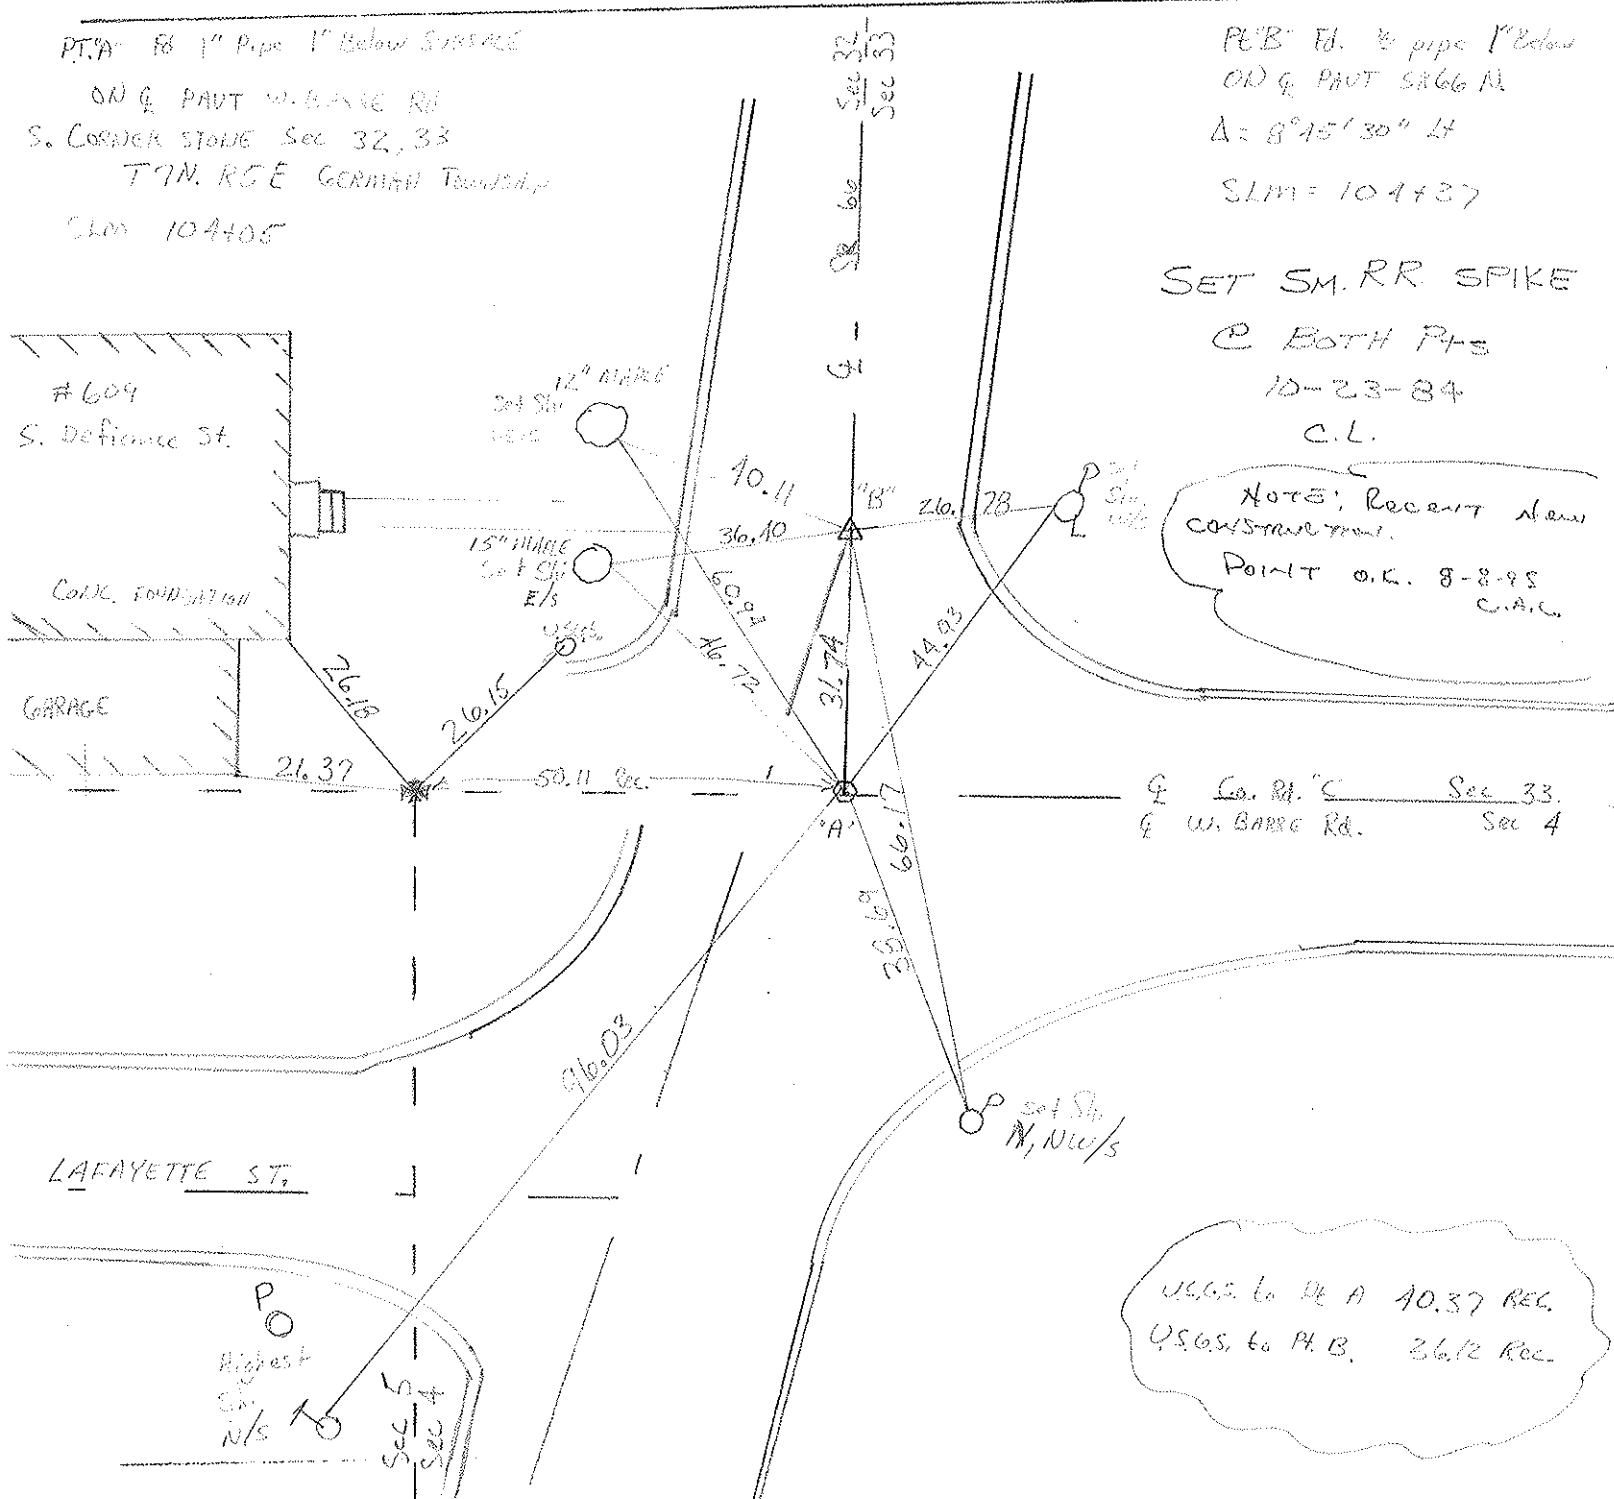 PT."A" Fd 1" Pipe 1" Below SURFACE
ON ℄ PAVT W. BARRE Rd
S. CORNER STONE Sec 32, 33
T7N. R5E GERMAN Township
SLM 104+05
Sec 32
Sec 33
℄ - SR 66
Pt."B" Fd. pipe 1" Below
ON ℄ PAVT SR66 N.
Δ = 8°45'30" Lt
SLM = 104+37
SET SM. RR. SPIKE
@ BOTH Pts
10-23-84
C.L.
NOTE: RECENT NEW
CONSTRUCTION.
POINT O.K. 8-8-95
C.A.C.
#609
S. Defiance St.
CONC. FOUNDATION
GARAGE
12" MAPLE
Set Shi
15" MAPLE
Set Shi
E/s
USGS
40.11
"B"
26.78
P
Set
Shi
W/s
36.40
60.94
46.72
31.74
44.93
26.18
26.15
21.37
50.11 Rec.
"A"
66.17
38.69
96.03
℄ Co. Rd. "C" Sec 33.
℄ W. BARRE Rd. Sec 4
P
Set Shi
N, NW/s
LAFAYETTE ST.
P
Highest
Shi
N/s
Sec 5
Sec 4
USGS to Pt A 40.37 REC.
USGS, to Pt. B. 26.12 Rec.